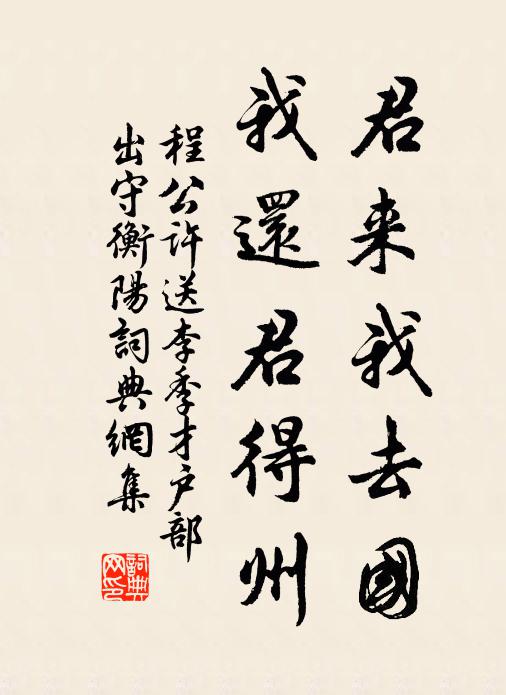 君来我去國
我還君得州
程公許送李季才户部
出守衡陽詞典網集
詞典
网印